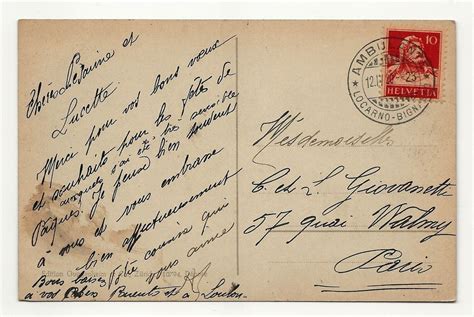 Chères Lédaine et
Lucette
Merci pour vos bons vœux
et souhaits pour les fête de
auxquels j'ai été très sensible
Pâques. Je pense bien souvent
à vous et vous embrasse
bien affectueusement
Votre cousine qui
vous aime
Bons baisers
à vos Chers Parents et à Loulou
AMBULANT
12.IV
LOCARNO-BIGN
10
HELVETIA
Mesdemoiselles
C et L Giovanetti
57 quai Valmy
Paris